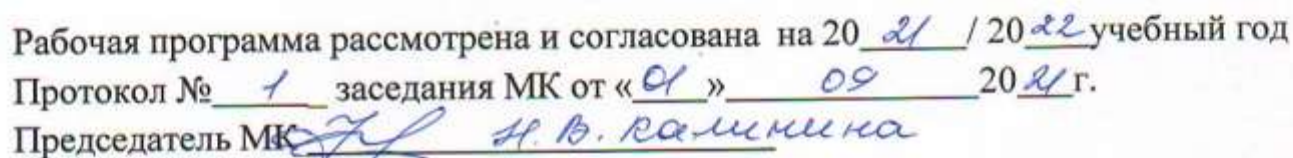 Рабочая программа рассмотрена и согласована на 20 21 / 20 22 учебный год
Протокол № 1 заседания МК от «01» 09 20 21 г.
Председатель МК Н. В. Калинина